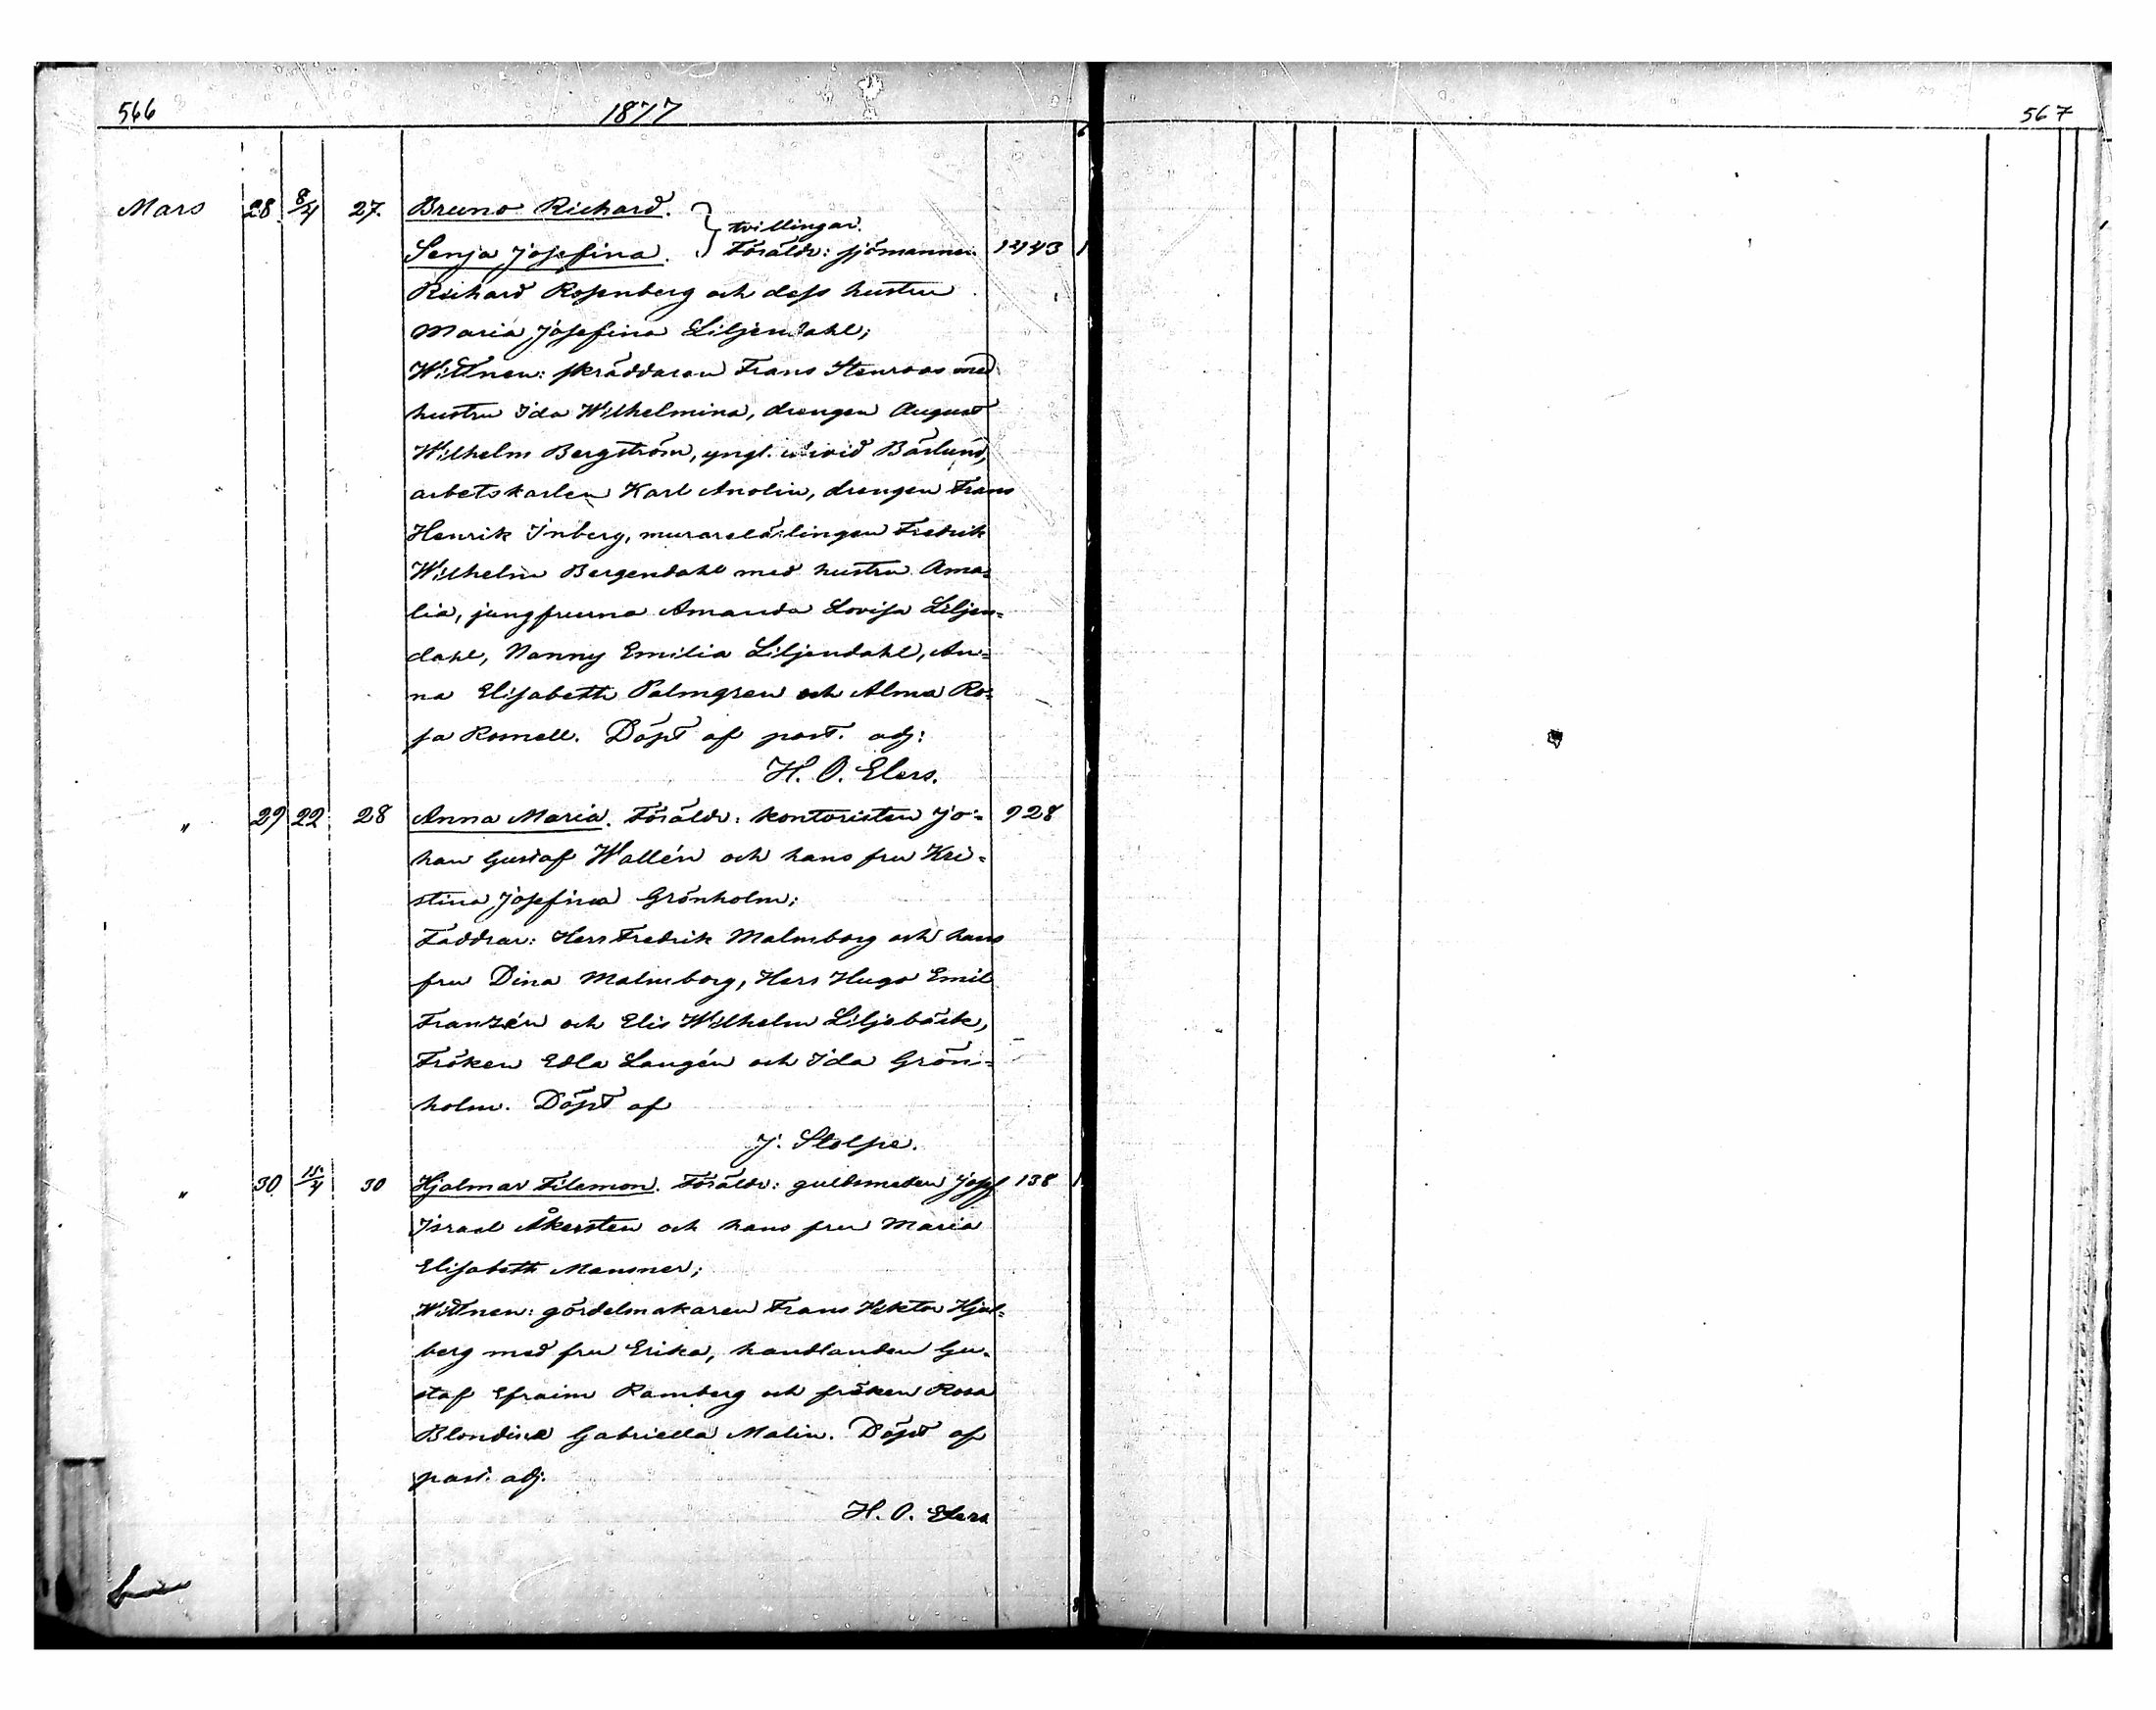 566 1877 567
Mars 28. 8/4 27. Bruno Richard.
tvillingar.
Senja Josefina. Föräldr: sjömannen 1443
Richard Rosenberg och dess hustru
Maria Josefina Liljendahl;
Wittnen: skräddaren Frans Stenroos med
hustru Ida Wilhelmina, drengen August
Wilhelm Bergström, yngl. Arvid Bärlund,
arbetskarlen Karl Anolin, drengen Frans
Henrik Inberg, murarelärlingen Fredrik
Wilhelm Bergendahl med hustru Ama=
lia, jungfrurna Amanda Lovisa Liljen=
dahl, Nanny Emilia Liljendahl, An=
na Elisabeth Palmgren och Alma Ro=
sa Romell. Döpt af past. adj:
H. O. Elers.
" 29 22 28 Anna Maria. Föräldr: kontoristen Jo= 928
han Gustaf Wallén och hans fru Kri=
stina Josefina Grönholm;
Faddrar: Herr Fredrik Malmborg och hans
fru Dina Malmborg, Herr Hugo Emil
Franzén och Elis Wilhelm Liljebäck,
Fröken Edla Langén och Ida Grön=
holm. Döpt af
J. Stolpe.
" 30 15/4 30 Hjalmar Filemon. Föräldr: guldsmeden Josef 138
Israel Åkersten och hans fru Maria
Elisabeth Mansner;
Wittnen: gördelmakaren Frans Viktor Hjel=
berg med fru Erika, handlanden Gu=
staf Efraim Ramberg och fröken Rosa
Blondina Gabriella Malin. Döpt af
past. adj.
H. O. Elers